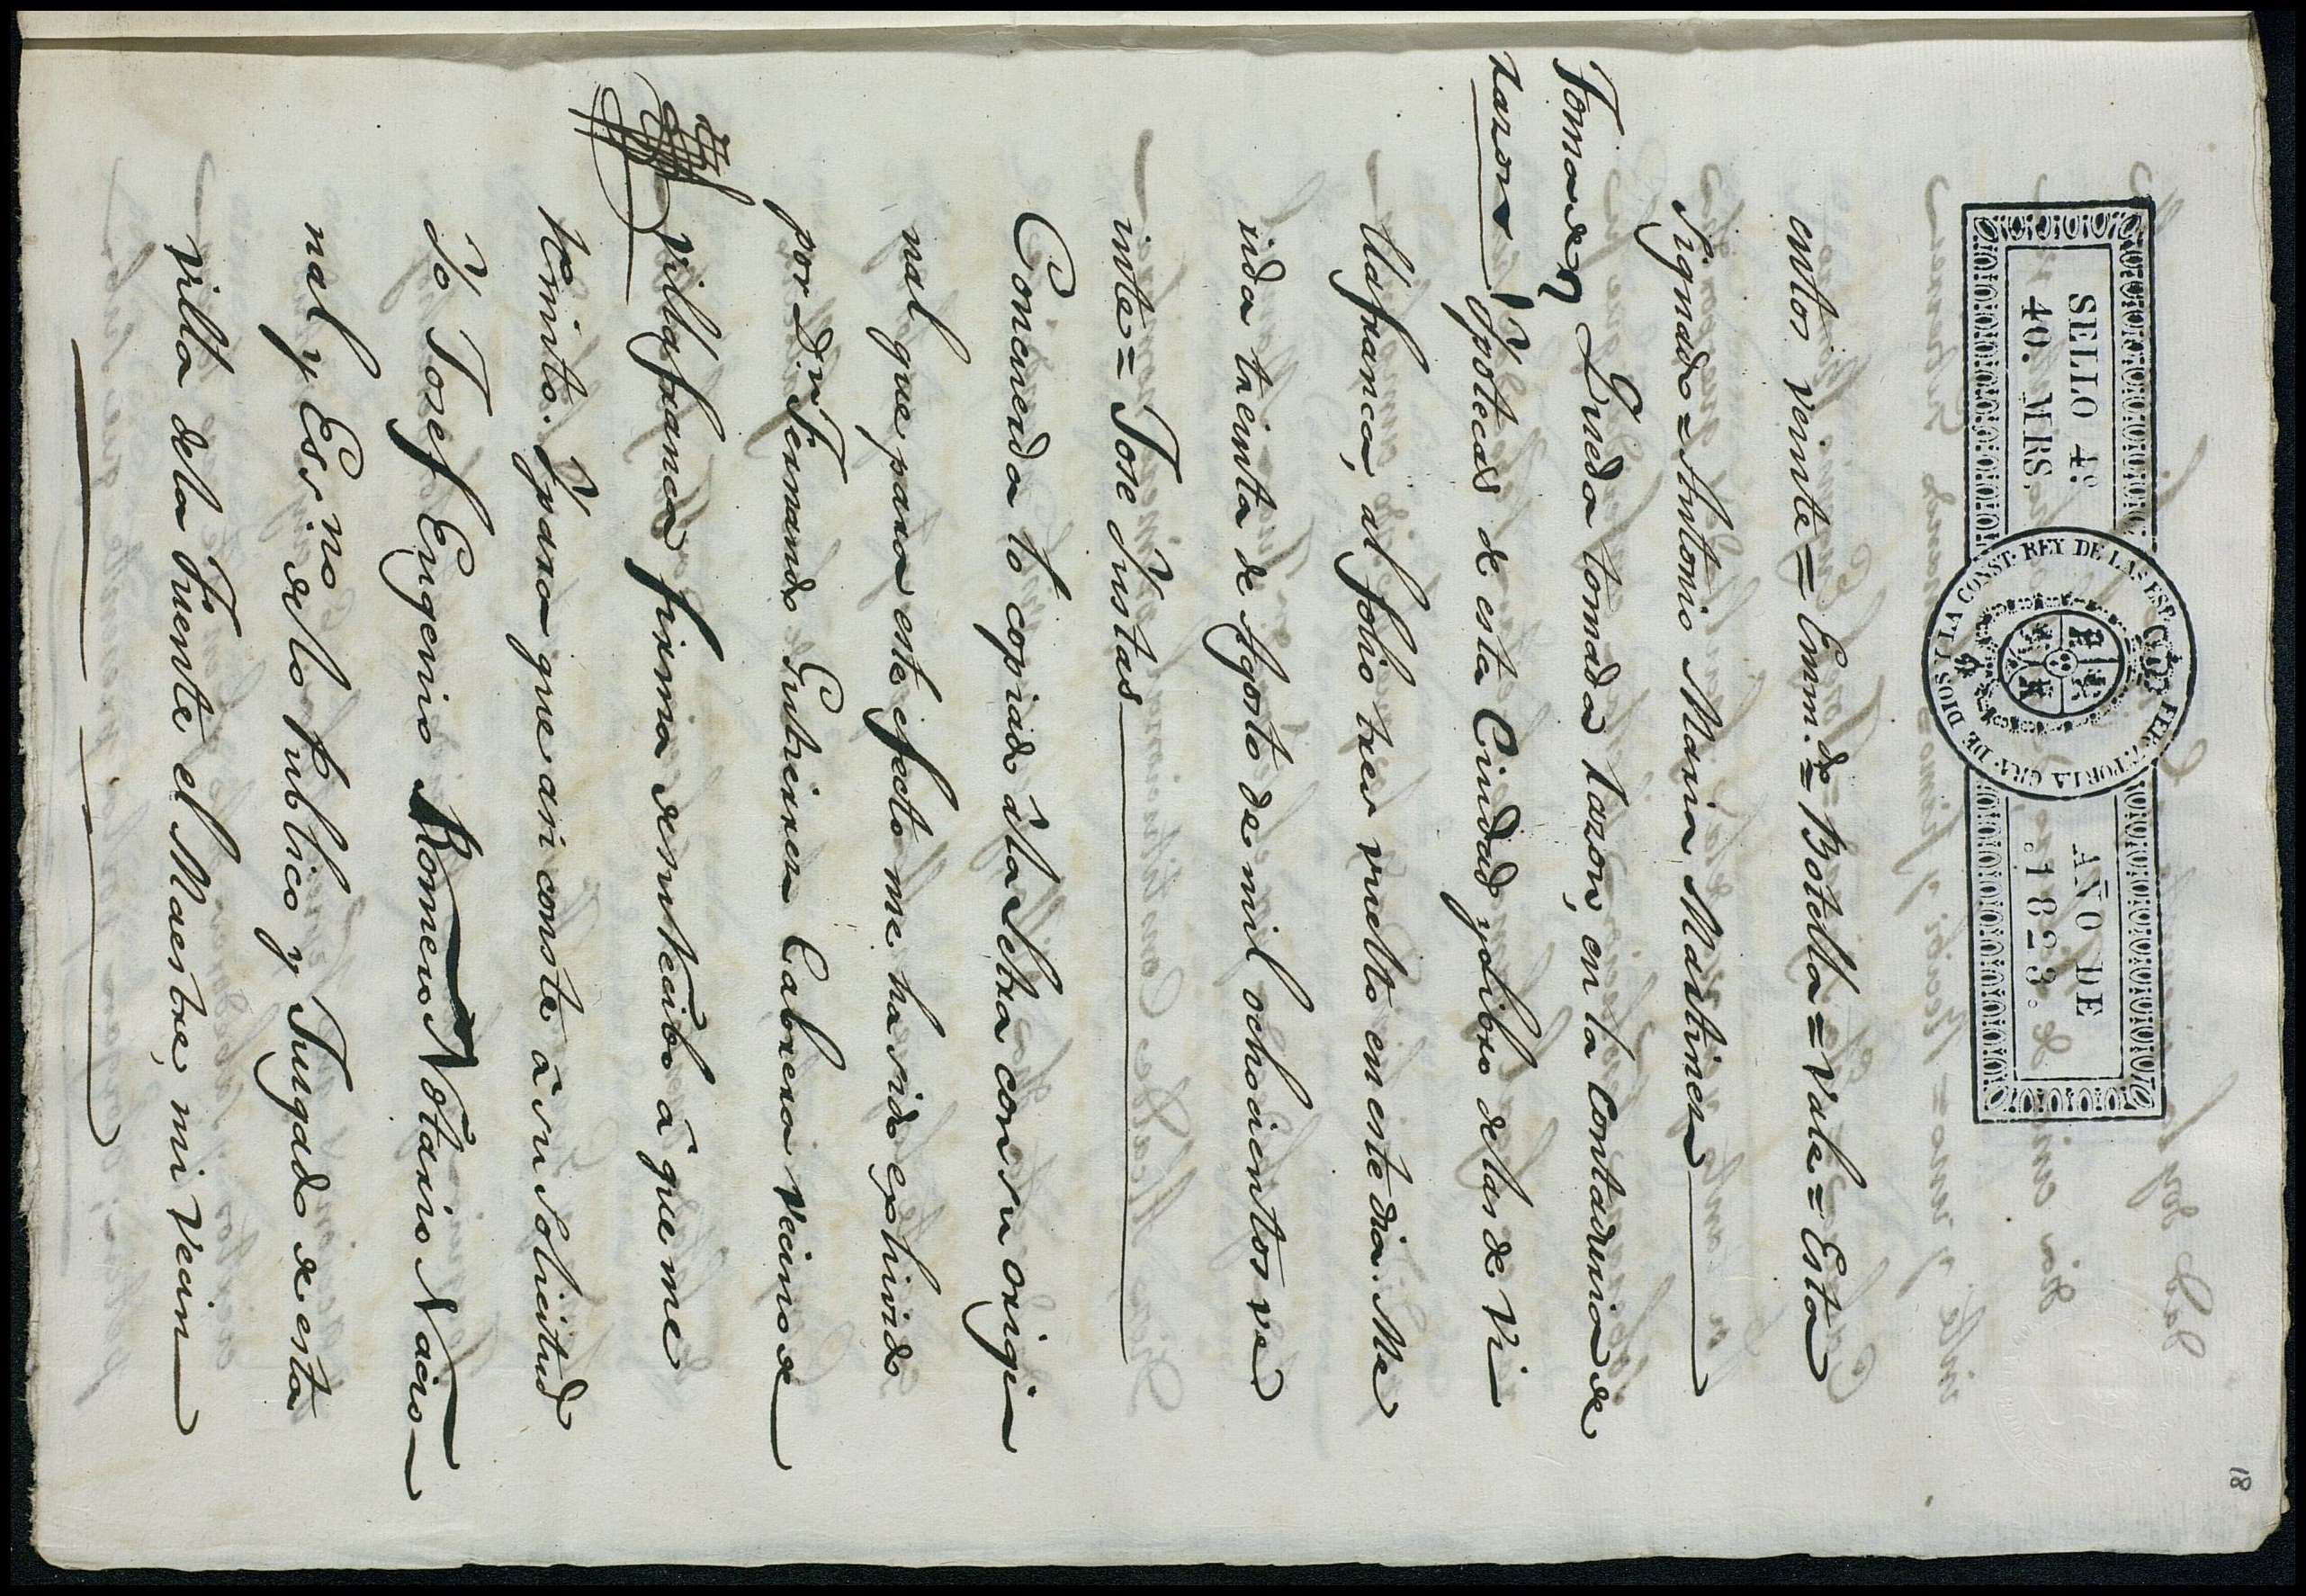 18
SELLO 4º
40. MRS.
AÑO DE
1823.
FER. 7º POR LA GRA. DE DIOS Y LA CONST. REY DE LAS ESP.
entos veinte = Emm.do = Botella = Vale = Esta
Signado = Antonio Maria Martinez
Toma de
razon
Queda tomada razon, en la Contaduria de
Ypotecas de esta Ciudad y libro de las de Vi
llafranca, al folio tres vuelto en este dia. Me
rida treinta de Agosto de mil ochocientos ve
inte = Jose Sustas
Concuerda lo copiado á la Letra con su origi
nal que para este efecto me ha sido exhivido
por D.n Fernando Gutierrez Cabrera vecino de
Villafranca firma de su recibo á que me
remito. Y para que asi conste á su solicitud
Yo Josef Eugenio Romero Notario Nacio
nal y Ess.no de lo publico y Juzgado de esta
villa de la Fuente el Maestre, mi vecin